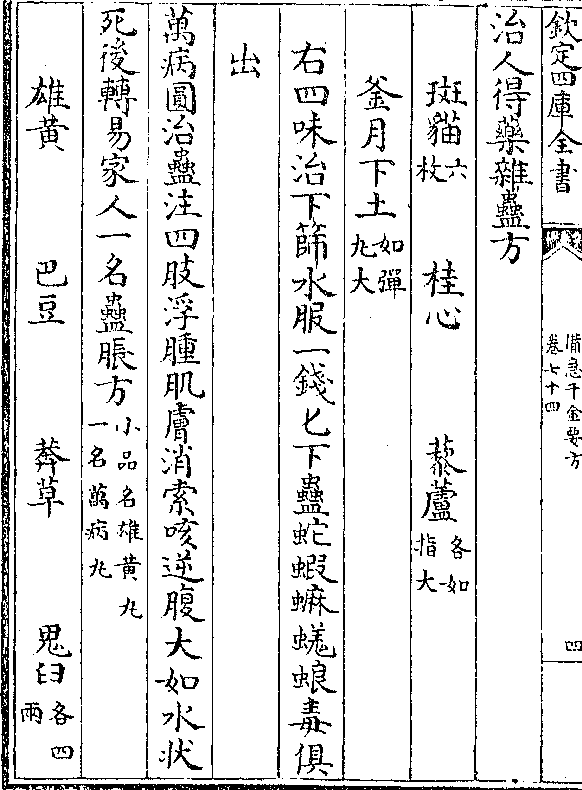 欽定四庫全書
備急千金要方
卷七十四
四
治人得藥雜蠱方
斑貓六枚 桂心 藜蘆各如指大
釜月下土如彈丸大
右四味治下篩水服一錢匕下蠱蛇蝦蟆蜣蜋毒俱
出
萬病圓治蠱注四肢浮腫肌膚消索咳逆腹大如水狀
死後轉易家人一名蠱脹方小品名雄黃丸一名萬病丸
雄黃 巴豆 莽草 鬼臼各四兩